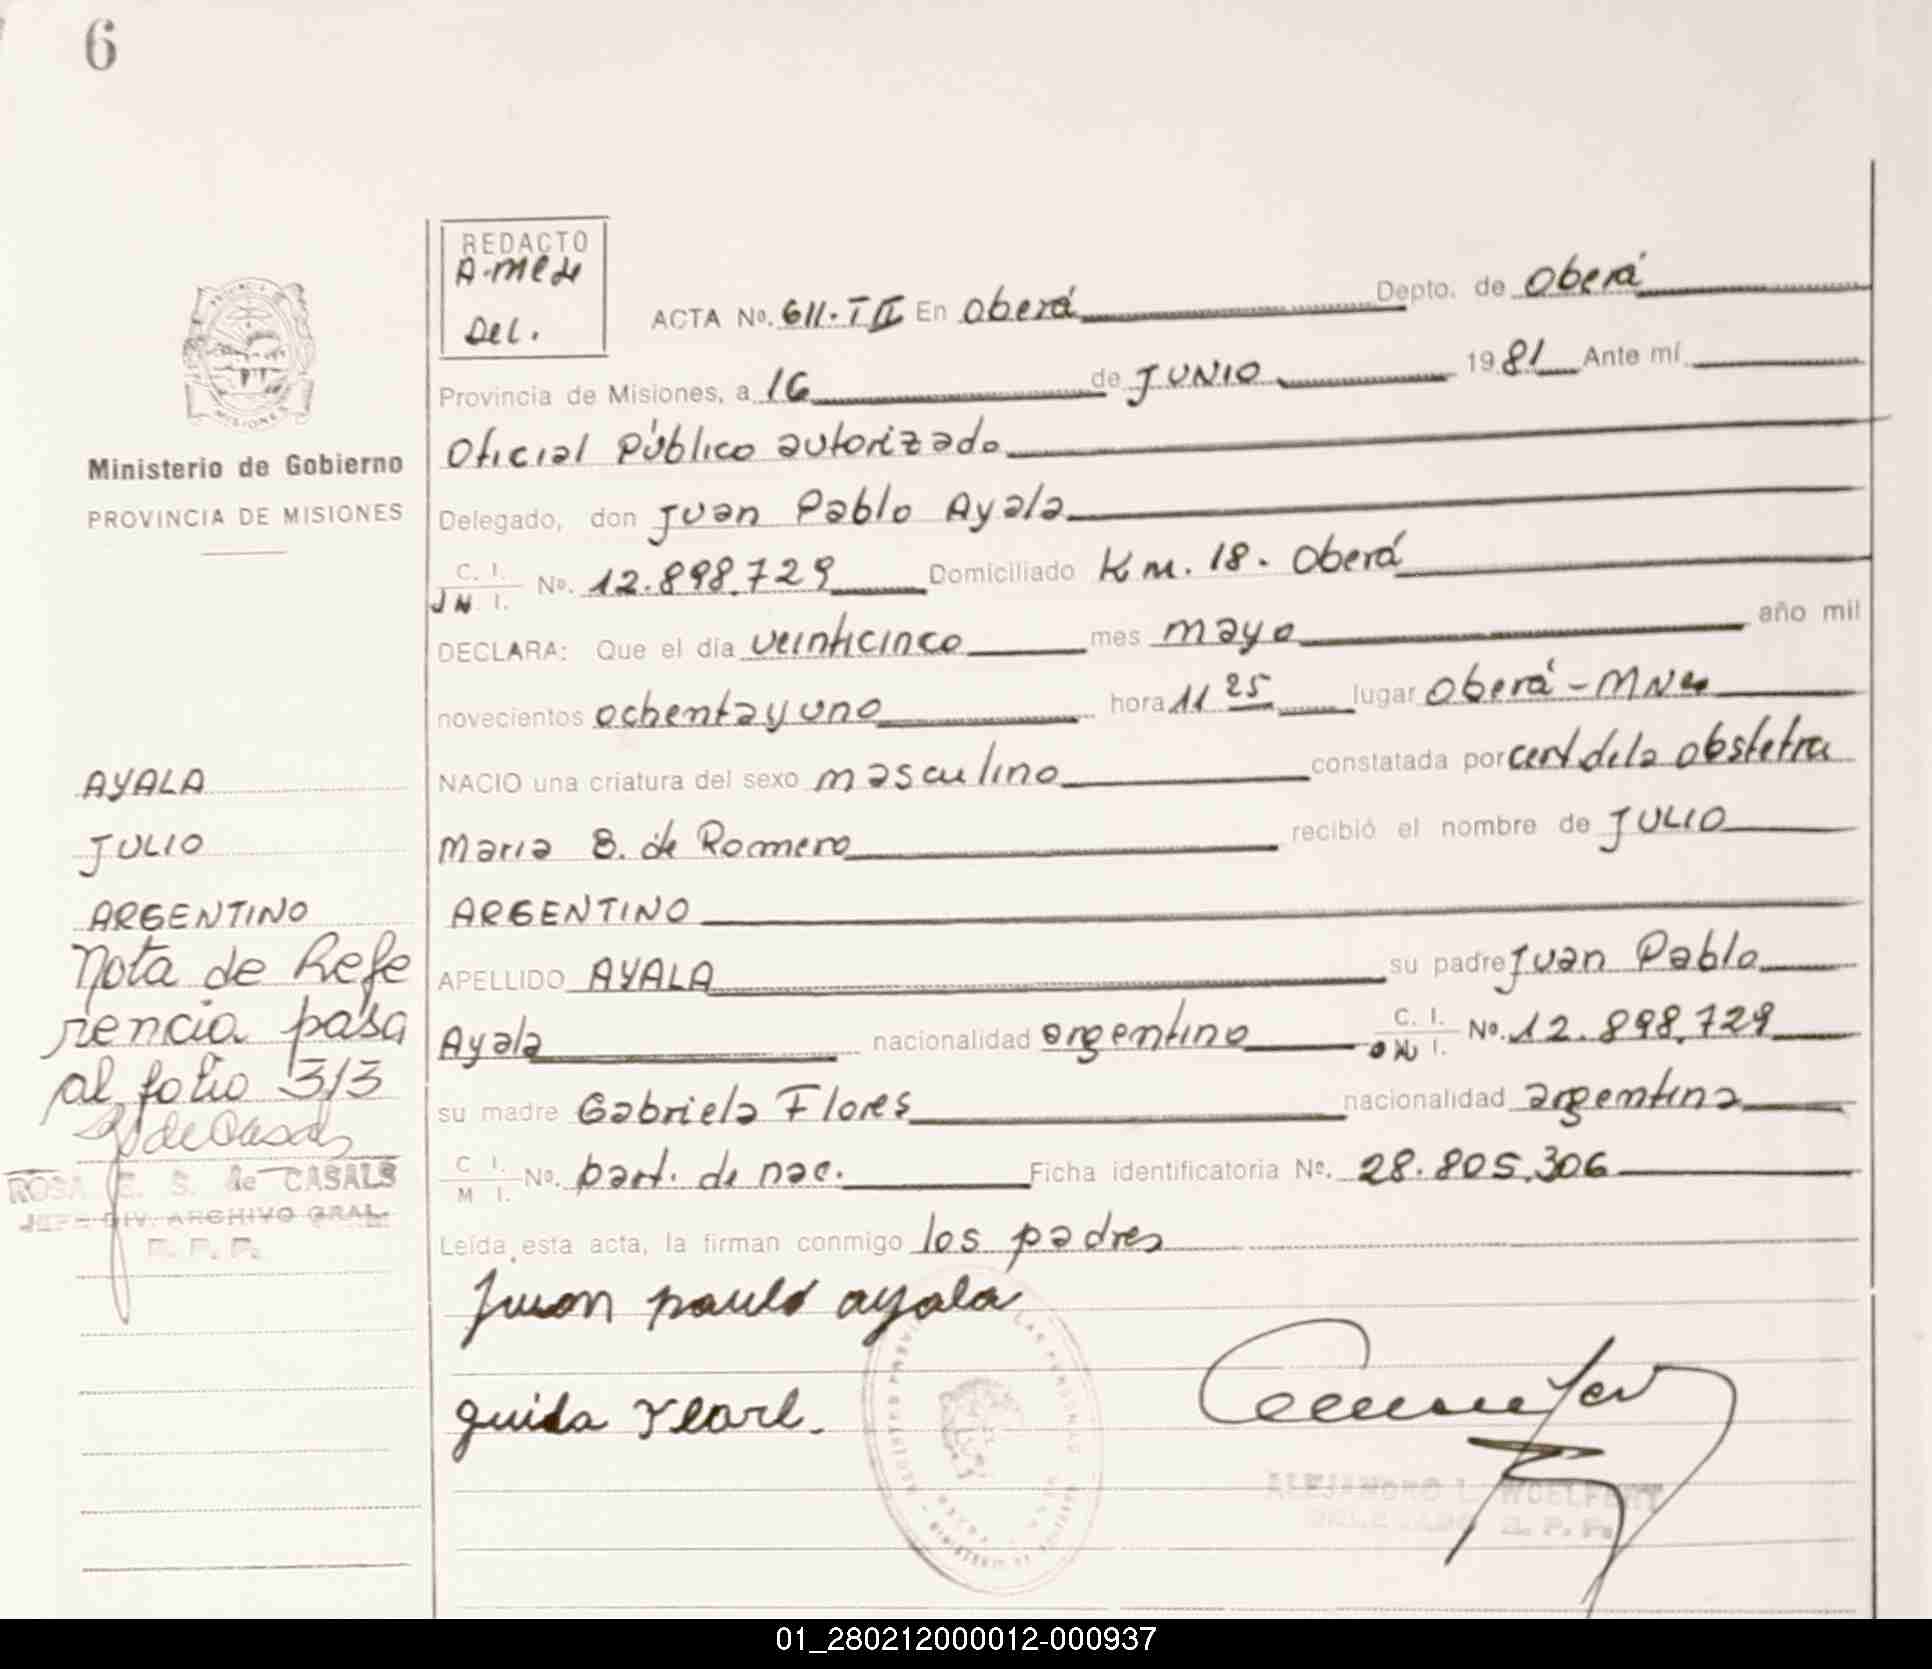 6
REDACTO
Del.
ACTA No. 611-TII En Oberá Depto. de Oberá
Provincia de Misiones, a 16 de JUNIO 1981 Ante mí
Oficial Público autorizado
Delegado, don Juan Pablo Ayala
C. I. No. 12.898.729 Domiciliado Km. 18. Oberá
DECLARA: Que el día veinticinco mes mayo año mil
novecientos ochenta y uno hora 11 25 lugar Oberá - MNes
NACIO una criatura del sexo masculino constatada por cert de la obstetra
Maria B. de Romero recibió el nombre de JULIO
ARGENTINO
APELLIDO AYALA su padre Juan Pablo
Ayala nacionalidad argentino C. I. No. 12.898.729
su madre Gabriela Flores nacionalidad argentina
C. I. M. I. No. part. de nac. Ficha identificatoria No. 28.805.306
Leída esta acta, la firman conmigo los padres
Juan paulo ayala
MISIONES
Ministerio de Gobierno
PROVINCIA DE MISIONES
AYALA
JULIO
ARGENTINO
Nota de Refe
rencia pasa
al folio 313
ROSA E. S. de CASALS
JEFE DIV. ARCHIVO GRAL.
R. P. P.
ALEJANDRO L. WOELFERT
DELEGADO R. P. P.
01_280212000012-000937